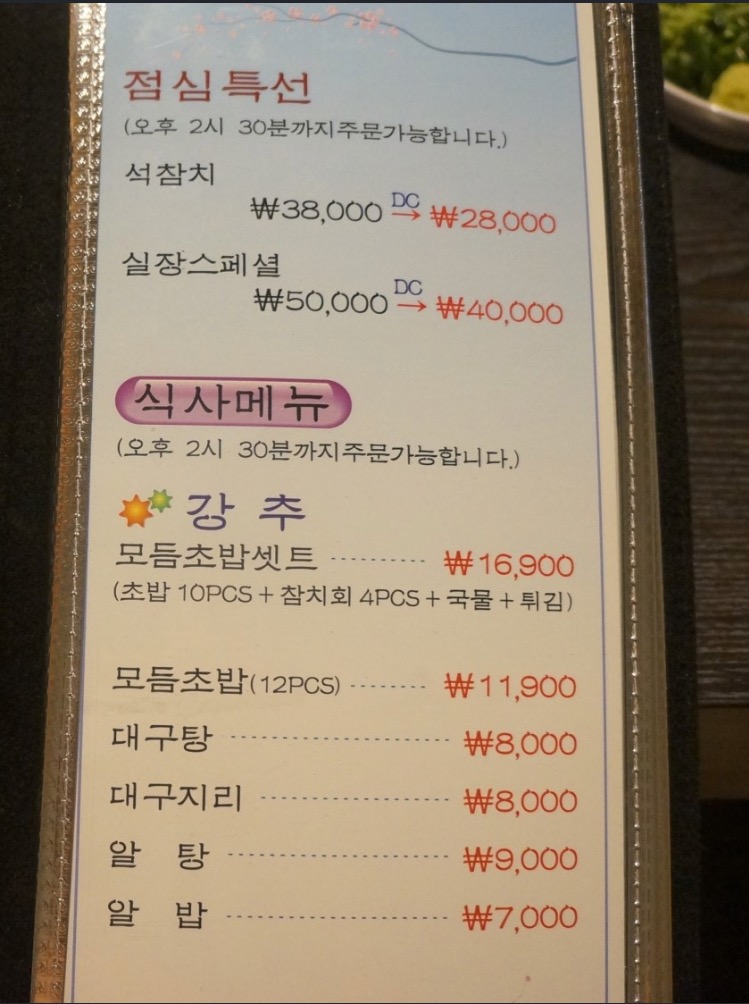 점심특선
(오후 2시 30분까지주문가능합니다.)
석참치
₩38,000 DC → ₩28,000
실장스페셜
₩50,000 DC → ₩40,000
식사메뉴
(오후 2시 30분까지주문가능합니다.)
강 추
모듬초밥셋트 ------------ ₩16,900
(초밥 10PCS + 참치회 4PCS + 국물 + 튀김)
모듬초밥(12PCS) --------- ₩11,900
대구탕 ------------------------- ₩8,000
대구지리 --------------------- ₩8,000
알 탕 ------------------------- ₩9,000
알 밥 ------------------------- ₩7,000